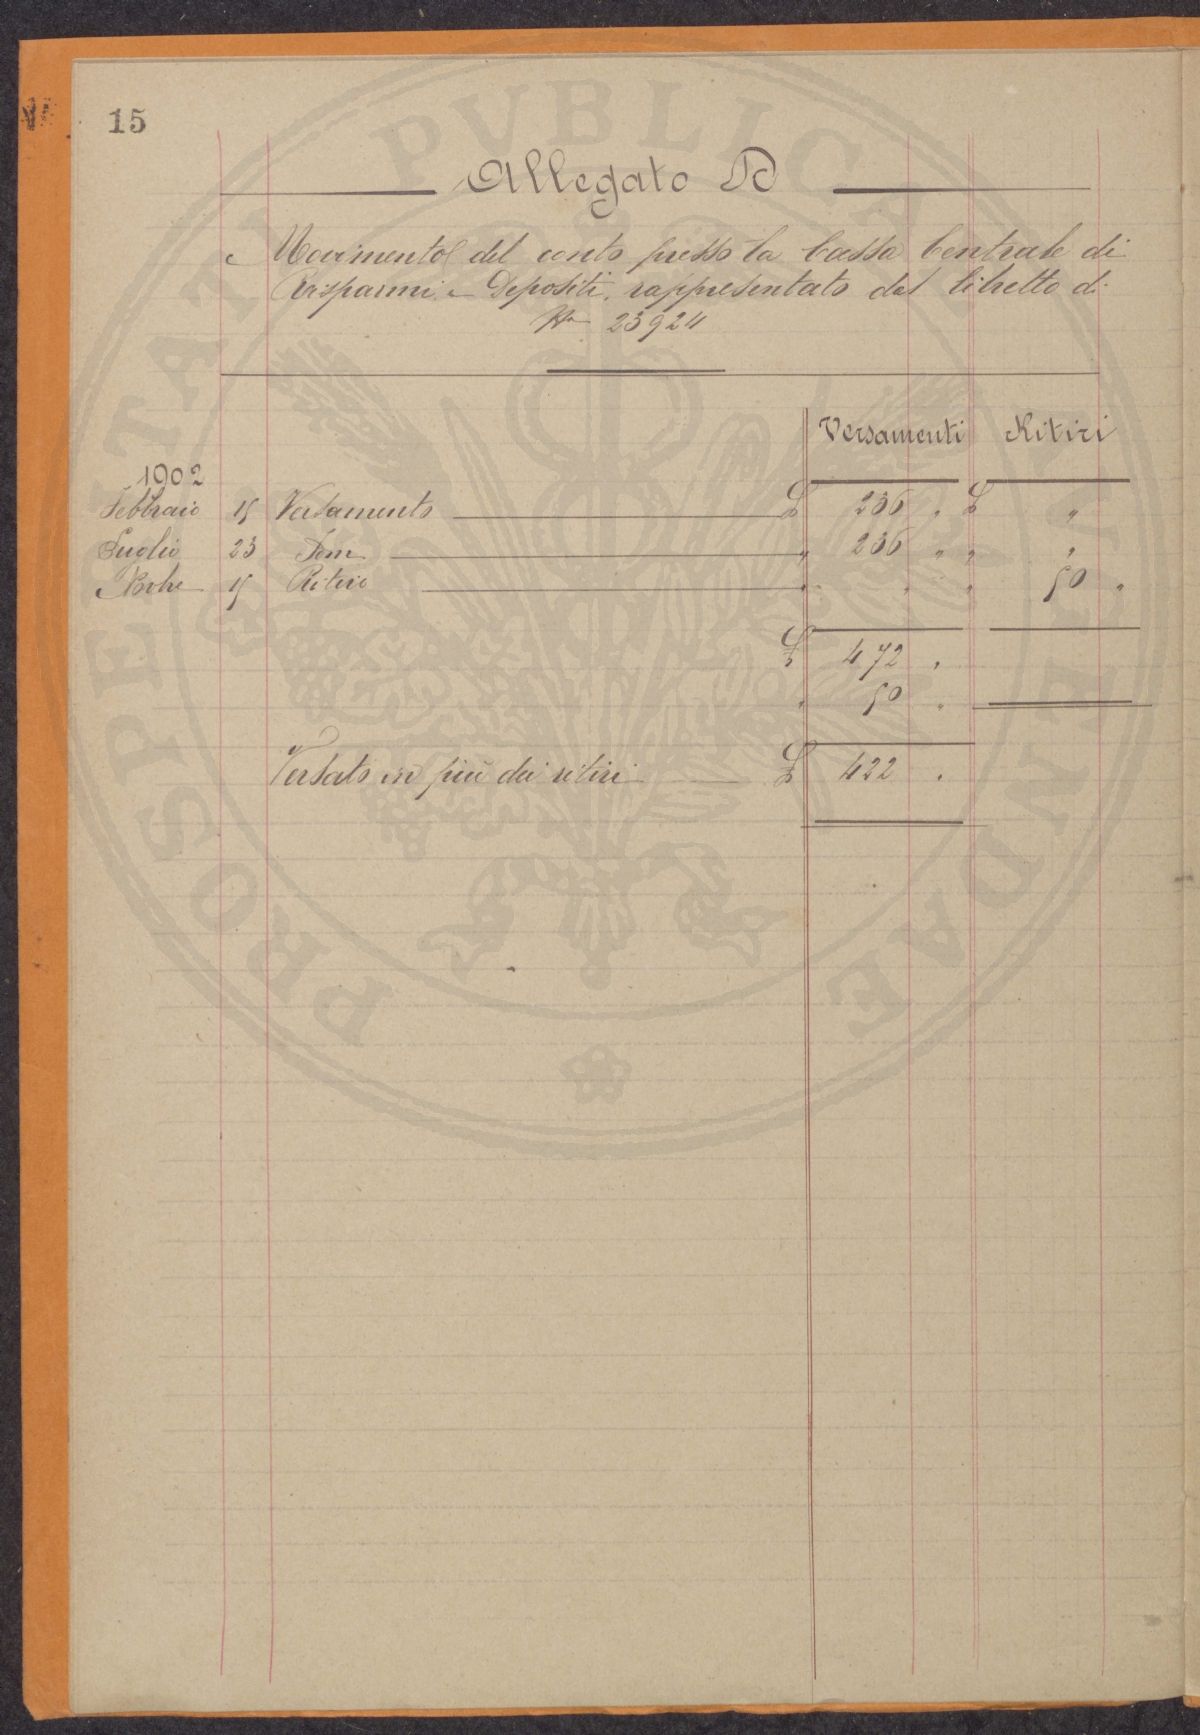 15
Allegato D
Movimento del conto presso la Cassa Centrale di
Risparmi e Depositi, rappresentato dal libretto di
N° 23924
Versamenti Ritiri
1902
Febbraio 15 Versamento £ 236 " £ "
Luglio 23 Idem " 236 " " "
Nbre 15 Ritiro " " " 50 "
£ 472 "
" 50 "
Versato in più dei ritiri £ 422 "
PROSPERITATI PVBLICAE AVGENDAE